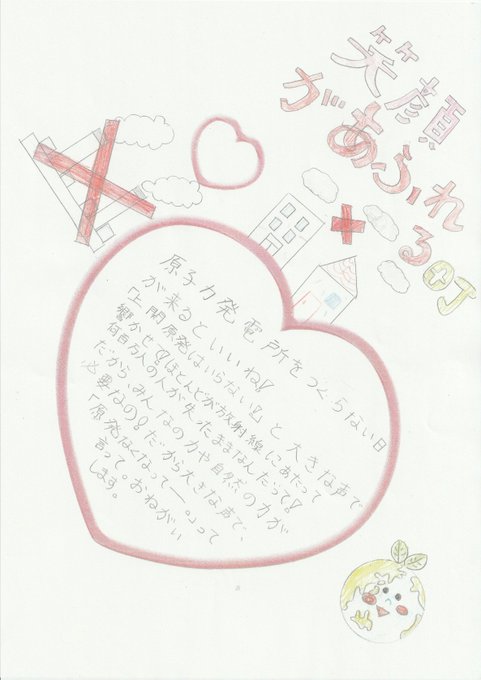 笑顔
があふれ
る町
原子力発電所をつくらない日
が来るといいね!
「上関原発はいらない!」と大きな声で
響かせて!ほとんどが放射線にあたって
何百万人の人が失ったきまなんだって!
だから、みんなの力や自然の力が
必要なの!だから大きな声で、
「原発なくなってー。」って
言って。おねがい
します。